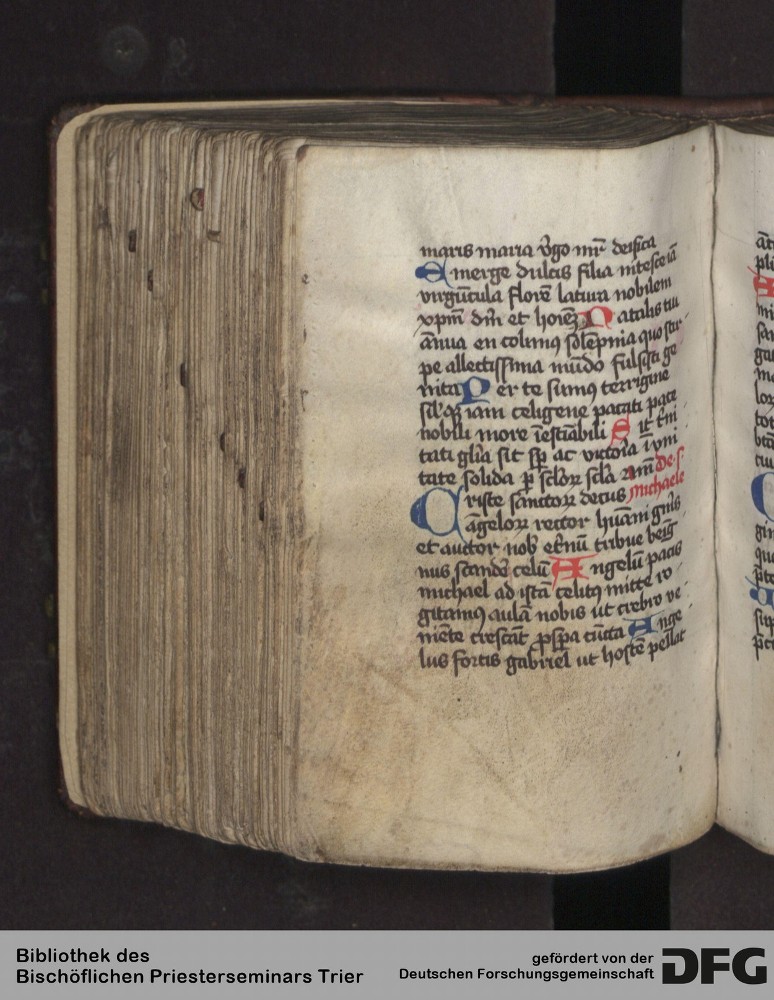 maris maria v̄go mr̄ deifica
Emerge dulcis filia nitesce iā
virgūcula florē latura nobilem
xpm̄ dm̄ et hoīeꝫ Natalis tui
ānua en colimꝰ solēpnia quo stir-
pe allectissima mūdo fulsisti ge
nita Per te sumꝰ terrigine
iam celigene pacati pace
nobili more īestiābili Sit tⁱni
tati glīa sit sp̄ ac victoīa ī vni
tate solida ꝑ scl̄oꝝ scl̄a am̄ de s.
Criste sanctoꝝ decus michaele
āgeloꝝ rector hūani gn̄is
et auctor nob̄ et̄nū tribue beīg
nus scandē celū Angelū pacis
michael ad istā celitꝰ mitte ro-
gitamꝰ aulā nobis ut crebro ve-
niēte crescāt ꝓspa cūcta Ange-
lus fortis gabriel ut hostē pellat
Bibliothek des
Bischöflichen Priesterseminars Trier
gefördert von der
Deutschen Forschungsgemeinschaft
DFG